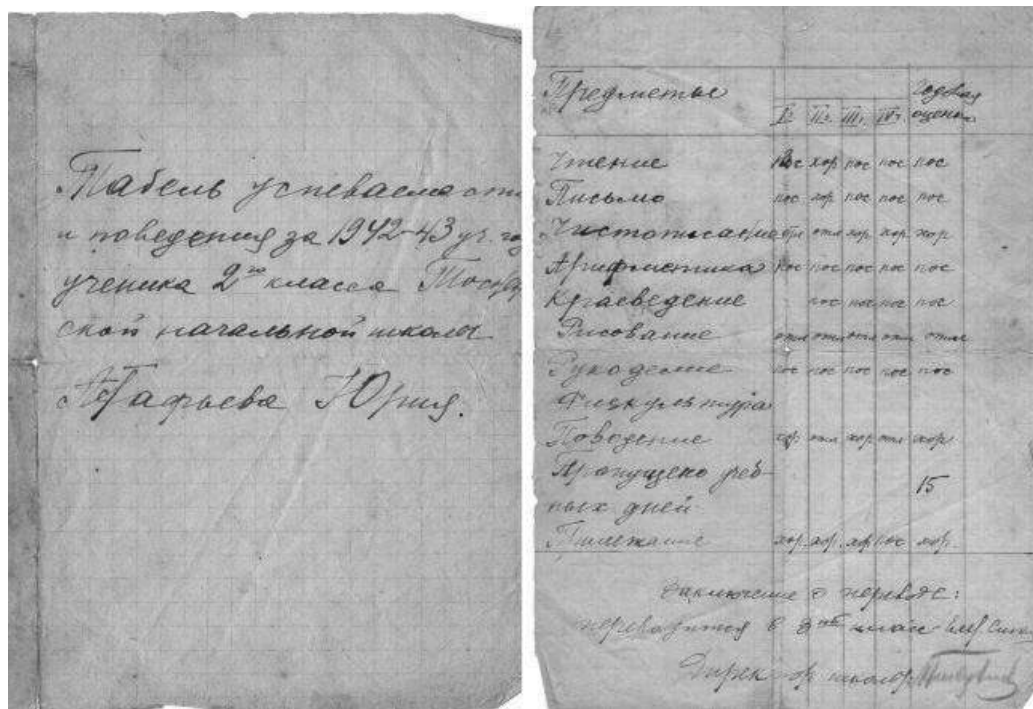 Табель успеваемости
и поведения за 1942-43 уч. го
ученика 2го класса
ской начальной школы
Юрия.
Предметы
Годовая
I ч. II ч. III ч. IV ч. оценка
Чтение пос хор пос пос пос
Письмо пос хор пос пос пос
Чистописание отл отл хор хор хор
Арифметика пос пос пос пос пос
Краеведение пос пос пос пос
Рисование отл отл отл отл отл
Рукоделие пос пос пос пос пос
Физкультура
Поведение хор отл хор отл хор
Пропущено учеб-
ных дней 15
Прилежание хор хор хор пос хор
Заключение о переводе:
переводится в 3ий класс
Директор школы